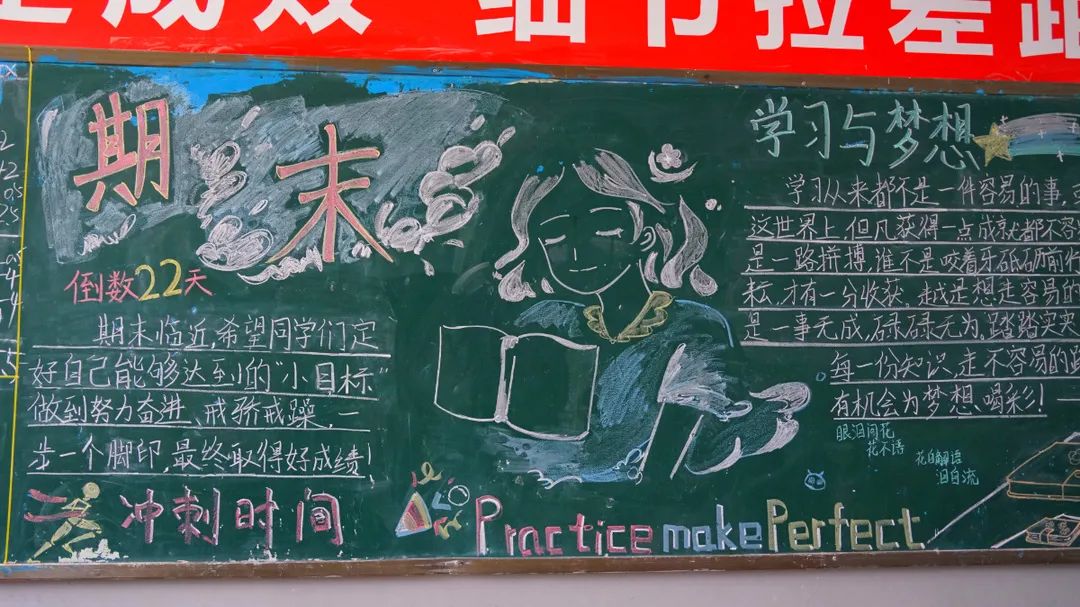 定成效 细节拉差距
期末
倒数22天
期末临近,希望同学们定
好自己能够达到的“小目标”
做到努力奋进、戒骄戒躁,一
步一个脚印,最终取得好成绩!
冲刺时间
Practice make Perfect
学习与梦想
学习从来都不是一件容易的事,
这世界上,但凡获得一点成就都不容
是一路拼搏,谁不是咬着牙砥砺前行
耘,才有一分收获。越是想走容易的
是一事无成,碌碌无为。踏踏实实
每一份知识,走不容易的路
有机会为梦想、喝彩!
眼泪问花
花不语
花自解语
泪自流